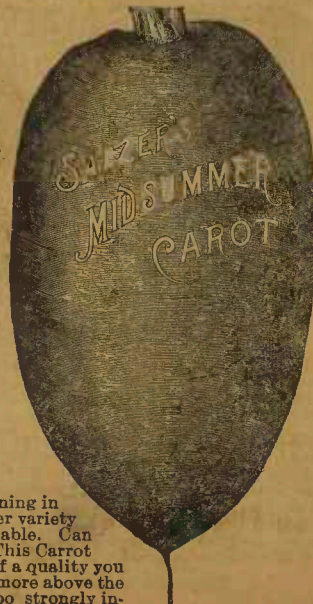 SALZER'S
MIDSUMMER
CAROT
ning in
er variety
able. Can
This Carrot
f a quality you
more above the
oo strongly in-